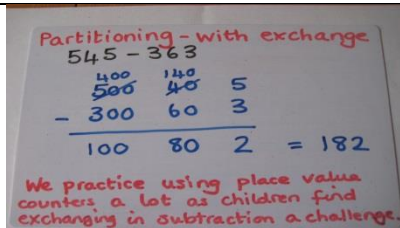 Partitioning - with exchange
545 - 363
400 140
500 40 5
- 300 60 3
100 80 2 = 182
We practice using place value
counters a lot as children find
exchanging in subtraction a challenge.